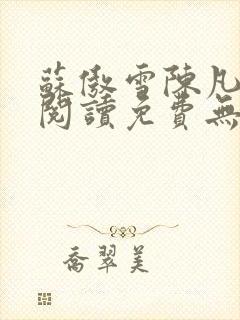 蘇傲雪陳凡
閱讀免費無
喬翠美